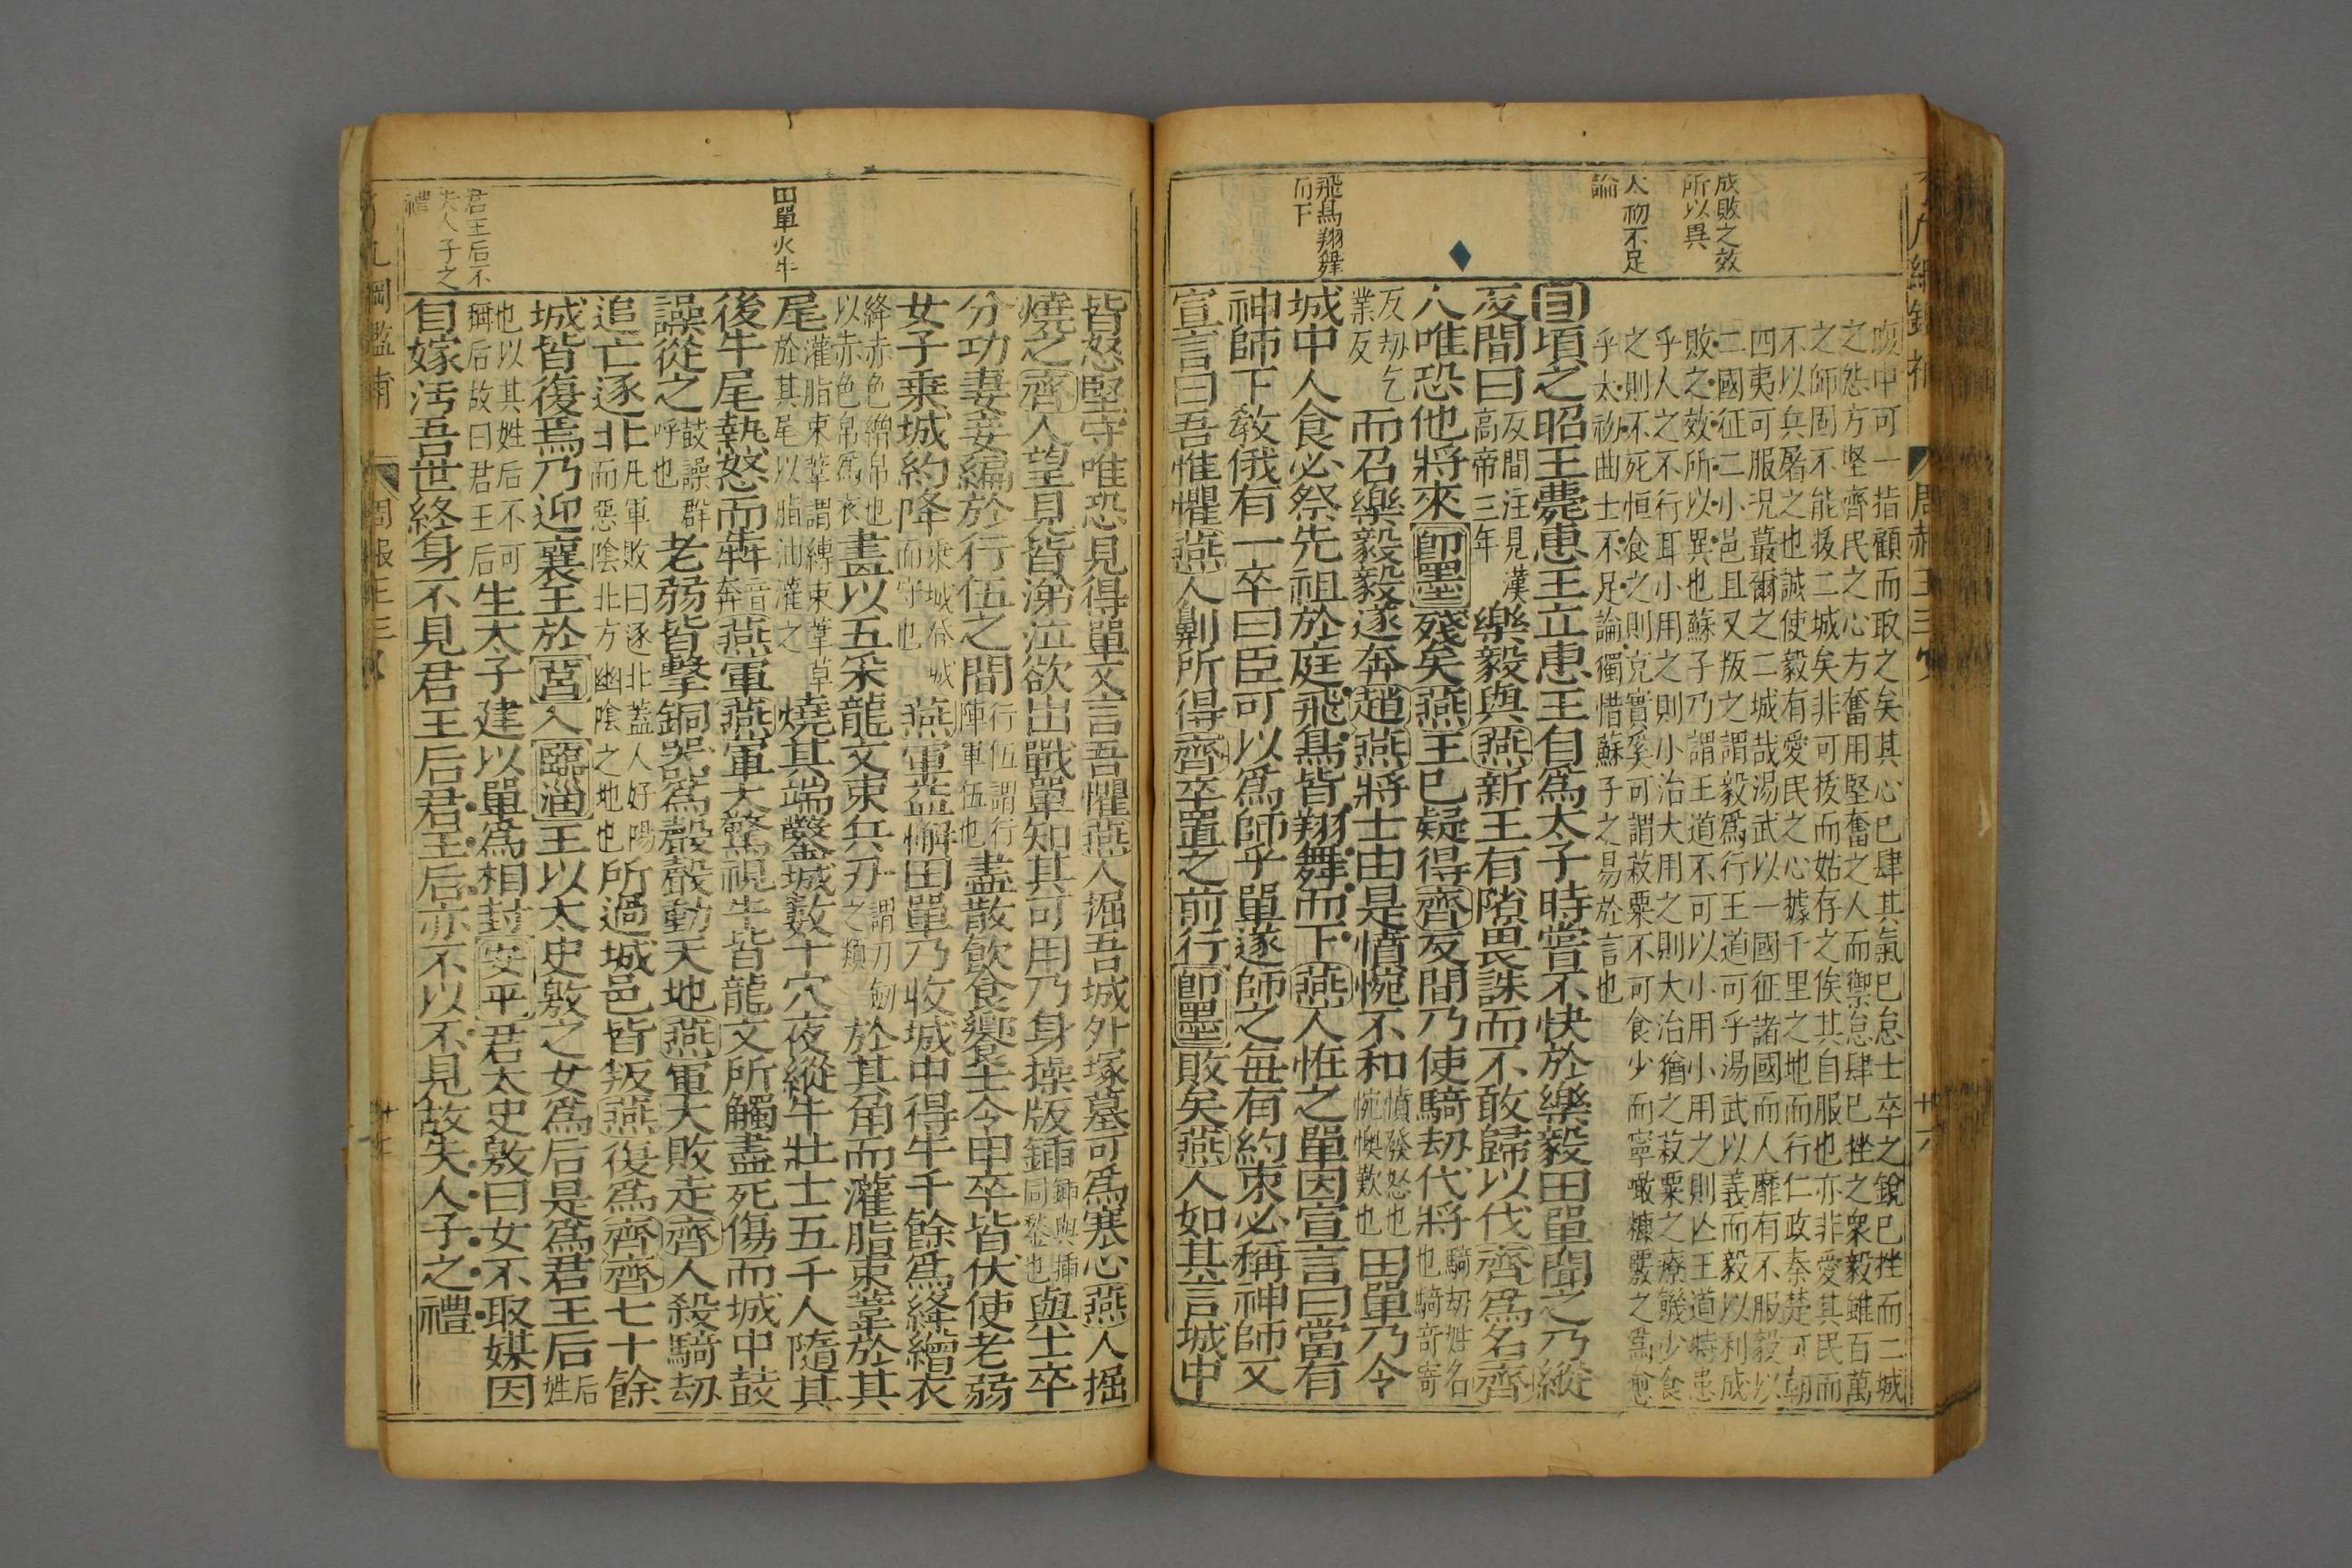 成敗之效
所以異
太初不足
論
飛鳥翔舞
而下
吸中可一指顧而取之矣其心已肆其氣已怠士卒之銳已挫而二城
之怨方堅齊民之心方奮用堅奮之人而禦怠肆已挫之衆毅雖百萬
之師固不能拔二城矣非可拔而姑存之俟其自服也亦非愛其民而
不以兵屠之也誠使毅有愛民之心據千里之地而行仁政秦楚可朝
四夷可服况蕞爾之二城哉湯武以一國征諸國而人靡有不服毅以
二國征二小邑且又叛之謂毅爲行王道可乎湯武以義而毅以利成
敗之效所以異也蘇子乃謂王道不可以小用小用之則亾王道特患
乎人之不行耳小用之則小治大用之則大治猶之菽粟之療饑少食
之則不死恒食之則克實奚可謂菽粟不可食少而寧噉糠覈之爲愈
乎太初曲士不足論獨惜蘇子之易於言也
目頃之昭王薨惠王立惠王自爲太子時嘗不快於樂毅田單聞之乃縱
反間曰反間注見漢高帝三年樂毅與燕新王有隙畏誅而不敢歸以伐齊爲名齊
人唯恐他將來卽墨殘矣燕王已疑得齊反間乃使騎刧代將騎刧姓名也騎竒寄
反刧乞業反而召樂毅毅遂奔趙燕將士由是憤惋不和憤發怒也惋懊歎也田單乃令
城中人食必祭先祖於庭飛鳥皆翔舞而下燕人怪之單因宣言曰當有
神師下教俄有一卒曰臣可以爲師乎單遂師之每有約束必稱神師又
宣言曰吾惟懼燕人劓所得齊卒置之前行卽墨敗矣燕人如其言城中
田單火牛
君王后不
失人子之
禮
皆怒堅守唯恐見得單又言吾懼燕人掘吾城外塚墓可爲寒心燕人掘
燒之齊人望見皆涕泣欲出戰單知其可用乃身操版鍤鍤與插同鍫也與士卒
分功妻妾編於行伍之間行伍謂行陣軍伍也盡散飲食饗士令甲卒皆伏使老弱
女子乗城約降乗城登城而守也燕軍益懈田單乃收城中得牛千餘爲絳繒衣
絳赤色繒帛也以赤色帛爲衣畫以五采龍文束兵刃謂刀劒之類於其角而灌脂束葦於其
尾灌脂束葦謂縛束葦草於其尾以脂油灌之燒其端鑿城數十穴夜縱牛壯士五千人隨其
後牛尾熱怒而犇音奔燕軍燕軍大驚視牛皆龍文所觸盡死傷而城中鼓
譟從之鼓譟群呼也老弱皆擊銅器爲聲聲動天地燕軍大敗走齊人殺騎刧
追亡逐北凡軍敗曰逐北蓋人好陽而惡陰北方幽陰之地也所過城邑皆叛燕復爲齊齊七十餘
城皆復焉乃迎襄王於莒入臨淄王以太史敫之女爲后是爲君王后后姓
也以其姓后不可稱后故曰君王后生太子建以單爲相封安平君太史敫曰女不取媒因
自嫁汚吾世終身不見君王后君王后亦不以不見故失人子之禮